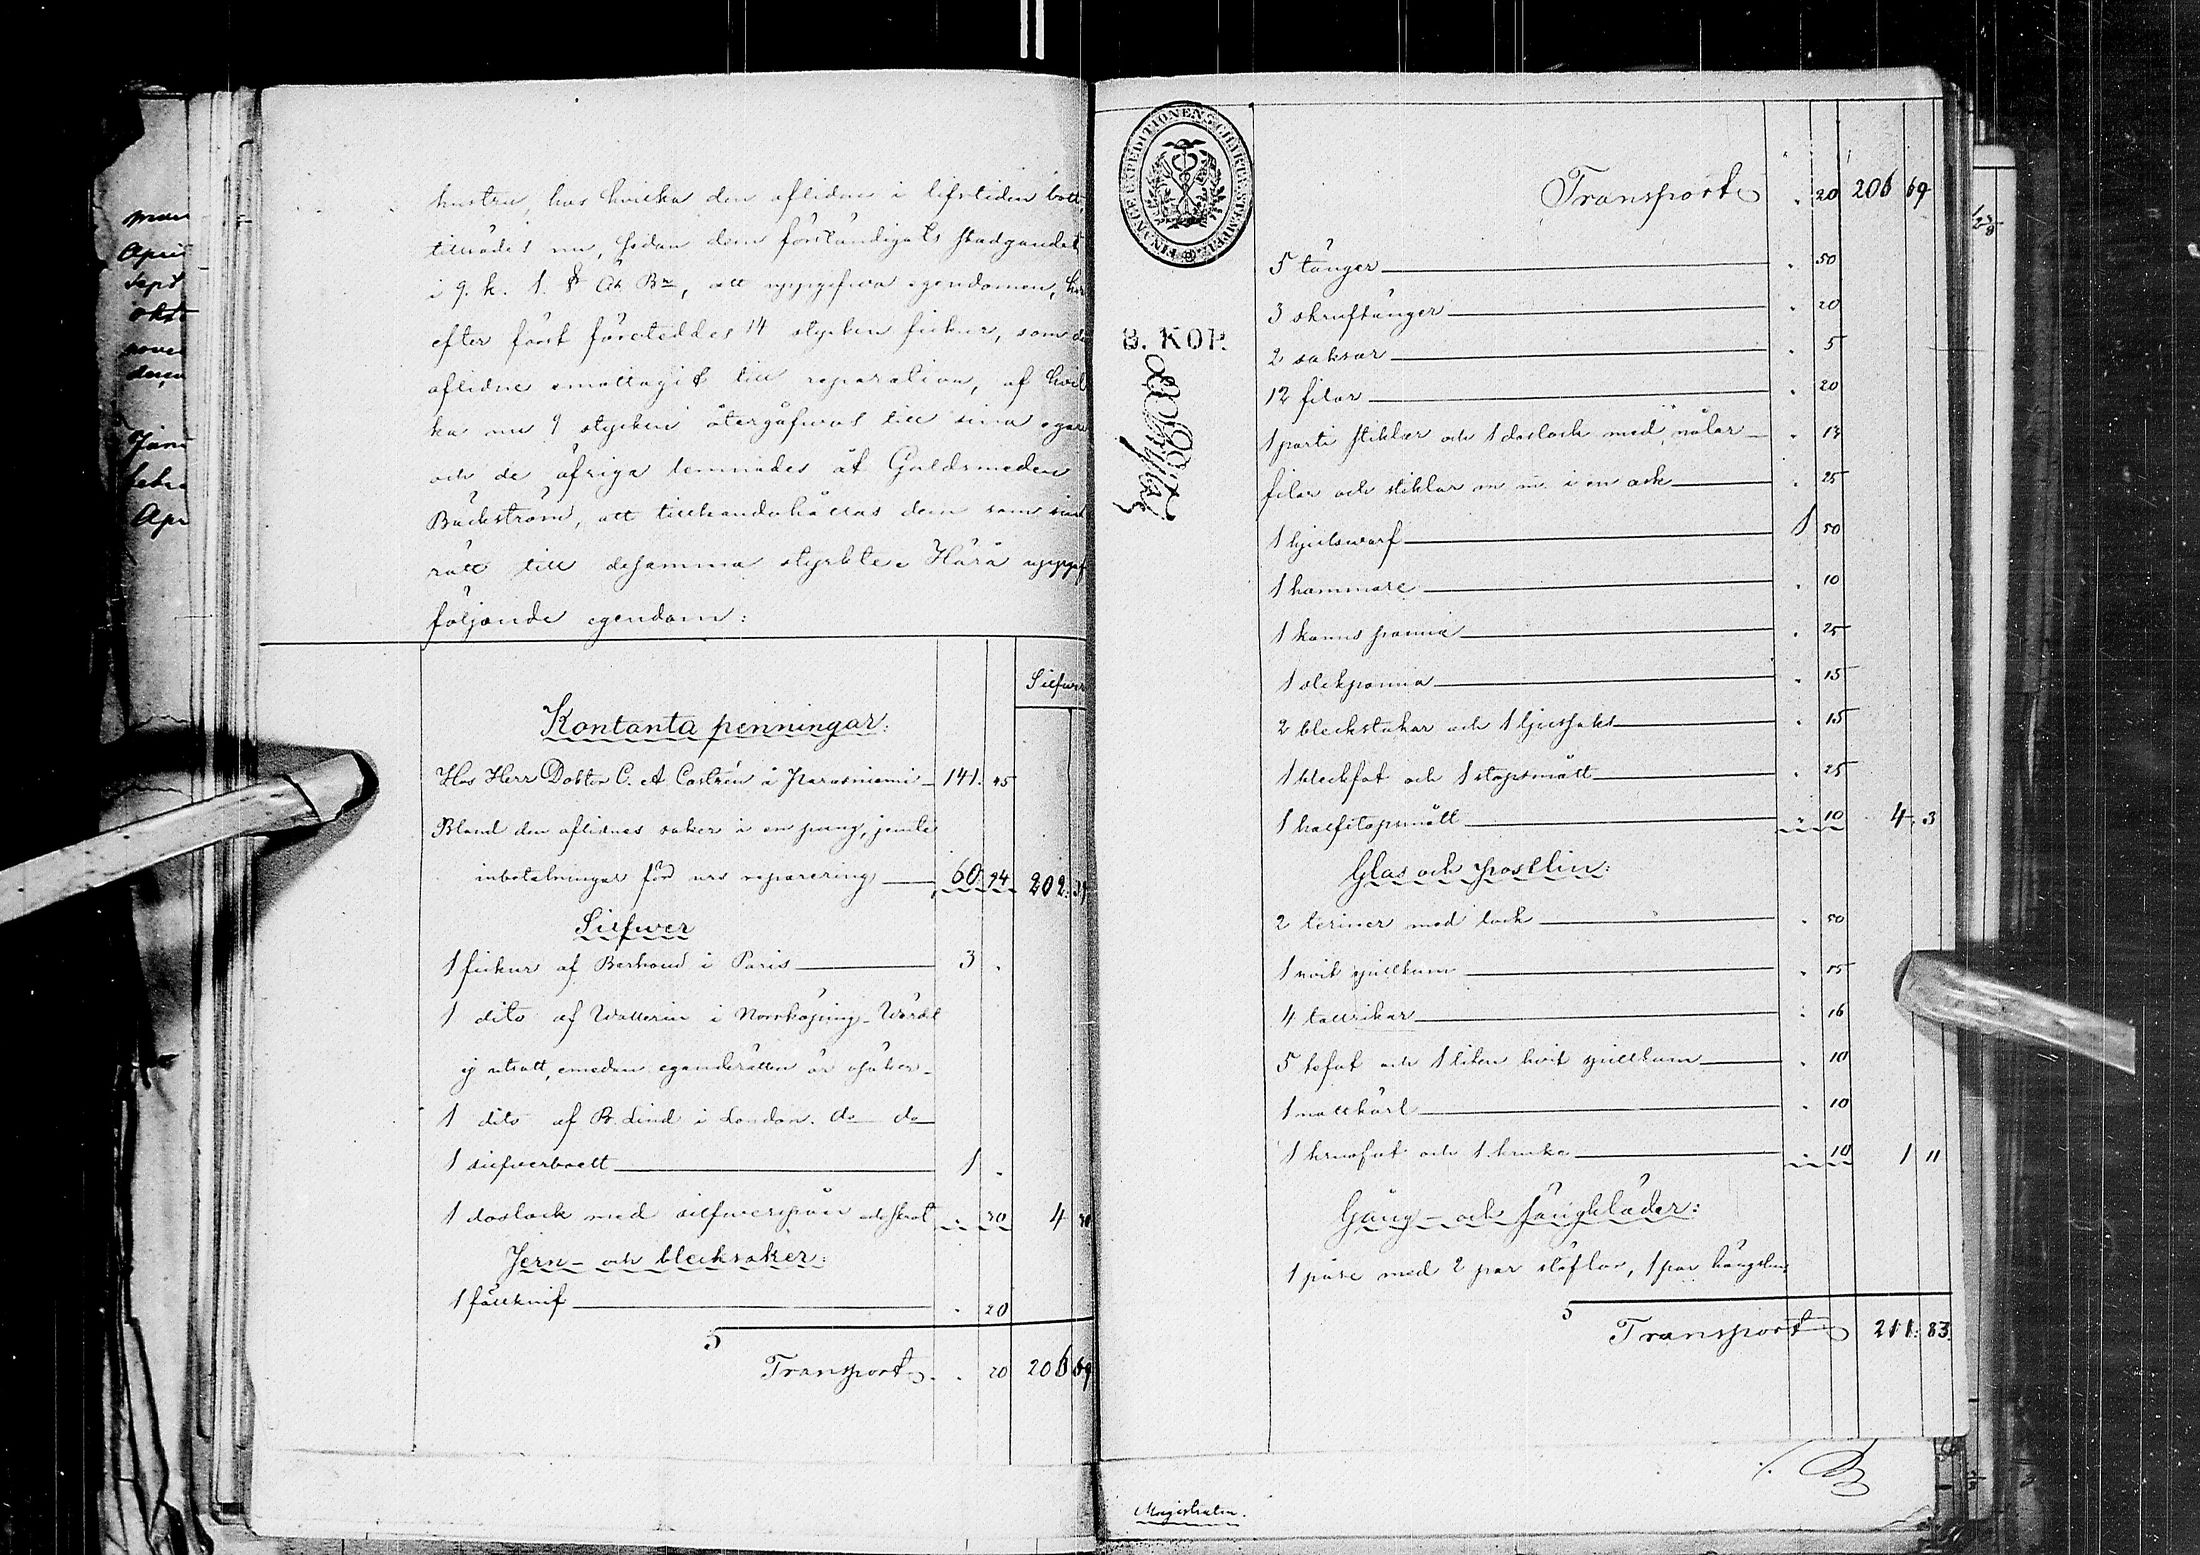 hustru, hos hvilka den aflidne i lifstiden bott,
tillsades nu, sedan dem förständigats stadgandet
i 9. k. 1. § Ä. Bn, att uppgifwa egendomen, hwar
efter först företeddes 14 stycken fickur, som den
aflidne emottagit till reparation, af hvil
ka nu 9 stycken återgåfwos till sina egare
och de öfriga lemnades åt Guldsmeden
Bäckström, att tillhandahållas dem som sin
rätt till desamma styrkte. Härå uppgafs
följande egendom:
Silfwer
Kontanta penningar:
Hos Herr Doktor C. A Castrén å Parasniemi 141. 45
Bland den aflidnes saker i en pung, jemte
inbetalningar för urs reparering 60. 94 202. 39
Silfwer
1 fickur af Berhoud i Paris 3 .
1 dito af Wetterin i Norrköping. Wärdt
ej utsatt, emedan eganderätten är osäker.
1 dito af B. Lind i London. do do
1 silfwerboett 1 .
1 doslock med silfwerspån och skrot . 30 4 30
Jern- och blecksaker:
1 fällknif . 20
5
Transport . 20 206 69
FINANCE EXPEDITIONENS CHARTÆ STEMPEL
8. KOP.
Transport . 20 206 69
5 tänger . 50
3 skruftänger . 20
2 saxar . 5
12 filar . 20
1 parti stiklar och 1 doslock med nålar . 13
filar och stiklar m m. i en ask . 25
1 hjulswarf 1 50
1 hammare . 10
1 kanns panna . 25
1 stekpanna . 15
2 bleckstakar och 1 ljussaks . 15
1 bleckfat och 1 stopsmått . 25
1 halfstopsmått . 10 4. 3
Glas och poslin:
2 teriner med lock . 50
1 hvit spillkum . 15
4 tallrikar . 16
5 tefat och 1 liten hvit spillkum . 10
1 nattkärl . 10
1 krusfat och 1 kruka . 10 1 11
Gång- och sängkläder:
1 påse med 2 par stöflor, 1 par hängslen,
5
Transport 211. 83.
Magistraten.